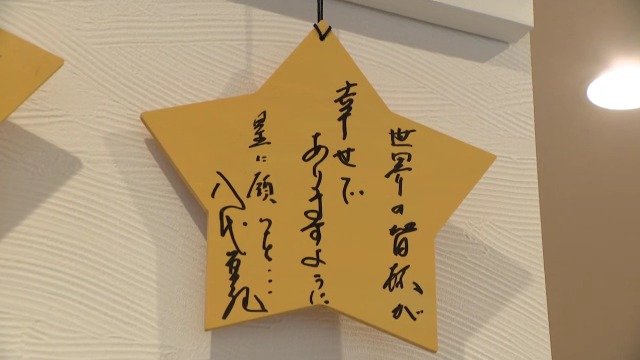 世界の皆様が
幸せで
ありますように
星に願いを…
八代亜紀